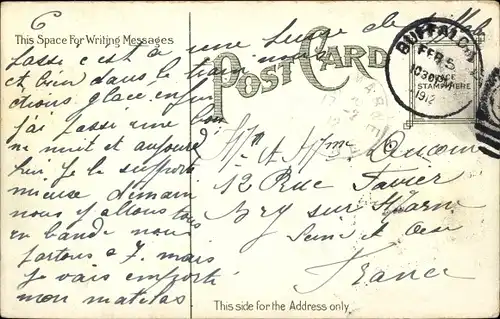 6
This Space For Writing Messages
POST CARD
BUFFALO
FEB 5
1030PM
1912
PLACE
STAMP HERE
passé c'est à une lieue de
et bien dans le train nous
j'ai passé une bonne
nuit et aujourd
hui je la supporte
mieuse demain
nous y allons tous
en bande nous
partons à 7. mais
je vais emporté
mon matelas
Mr et Mme
12 Rue Favier
Bry sur Marne
Seine et Oise
France
This side for the Address only